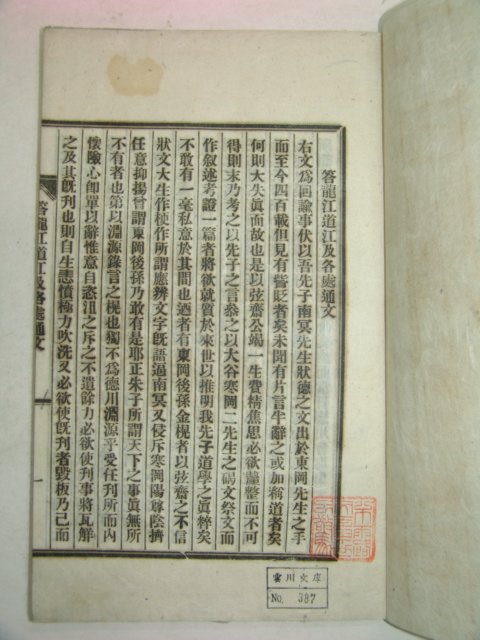 答龍江道江及各處通文
右文爲回諭事伏以吾先子南冥先生狀德之文出於東岡先生之手
而至今四百載但見有訾貶者矣未聞有片言半辭之或加稱道者矣
何則大失眞面故也是以弦齋公竭一生費精焦思必欲釐整而不可
得則末乃考之以先子之言叅之以大谷寒岡二先生之碣文祭文而
作叙述考證一篇者將欲就質於來世以推明我先子道學之眞粹矣
不敢有一毫私意於其間也廼者有東岡後孫金榥者以弦齋之不信
狀文大生作梗作所謂應辨文字旣語逼南冥又侵斥寒岡陽尊陰擠
任意抑揚曾謂東岡後孫乃敢有是耶正朱子所謂天下之事眞無所
不有者也第以淵源錄言之榥也獨不爲德川淵源乎受任刋所而內
懷險心卽單以辭惟意自恣沮之斥之不遺餘力必欲使刋事將瓦觧
之及其旣刋也則自生恚憤極力吹洗又必欲使旣刋者毀板乃已而
答龍江道江及各處通文
一
雲川文庫
No. 397